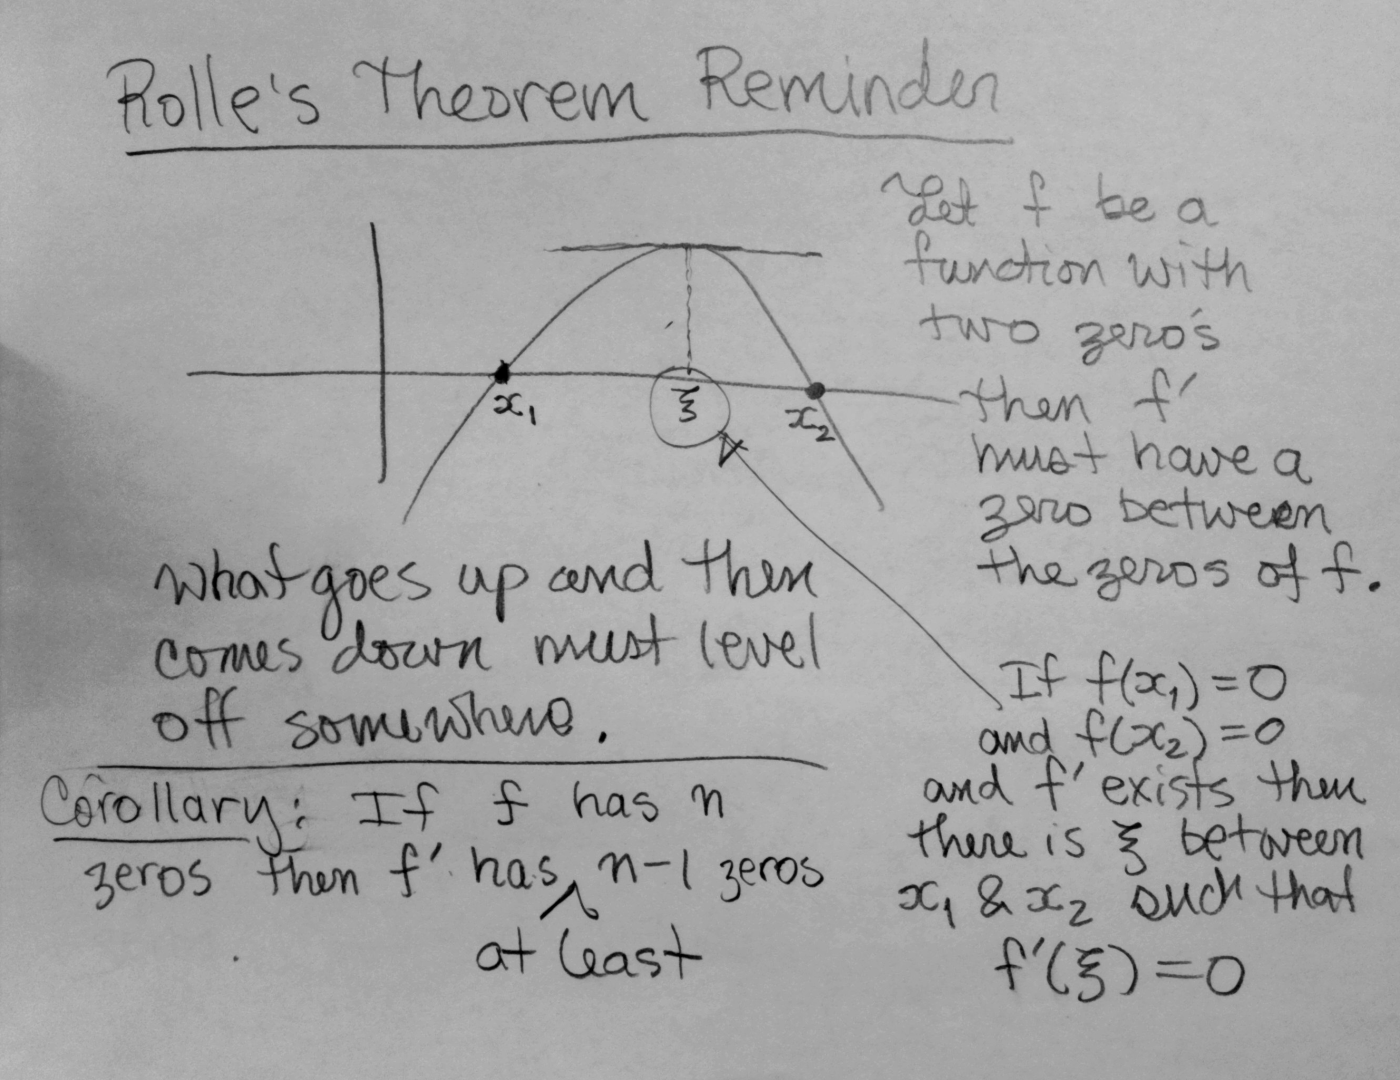 Rolle's Theorem Reminder
Let f be a
function with
two zero's
then f'
must have a
zero between
the zeros of f.
x₁
ξ
x₂
what goes up and then
comes down must level
off somewhere.
If f(x₁) = 0
and f(x₂) = 0
and f' exists then
there is ξ between
x₁ & x₂ such that
f'(ξ) = 0
Corollary: If f has n
zeros then f' has n-1 zeros
at least